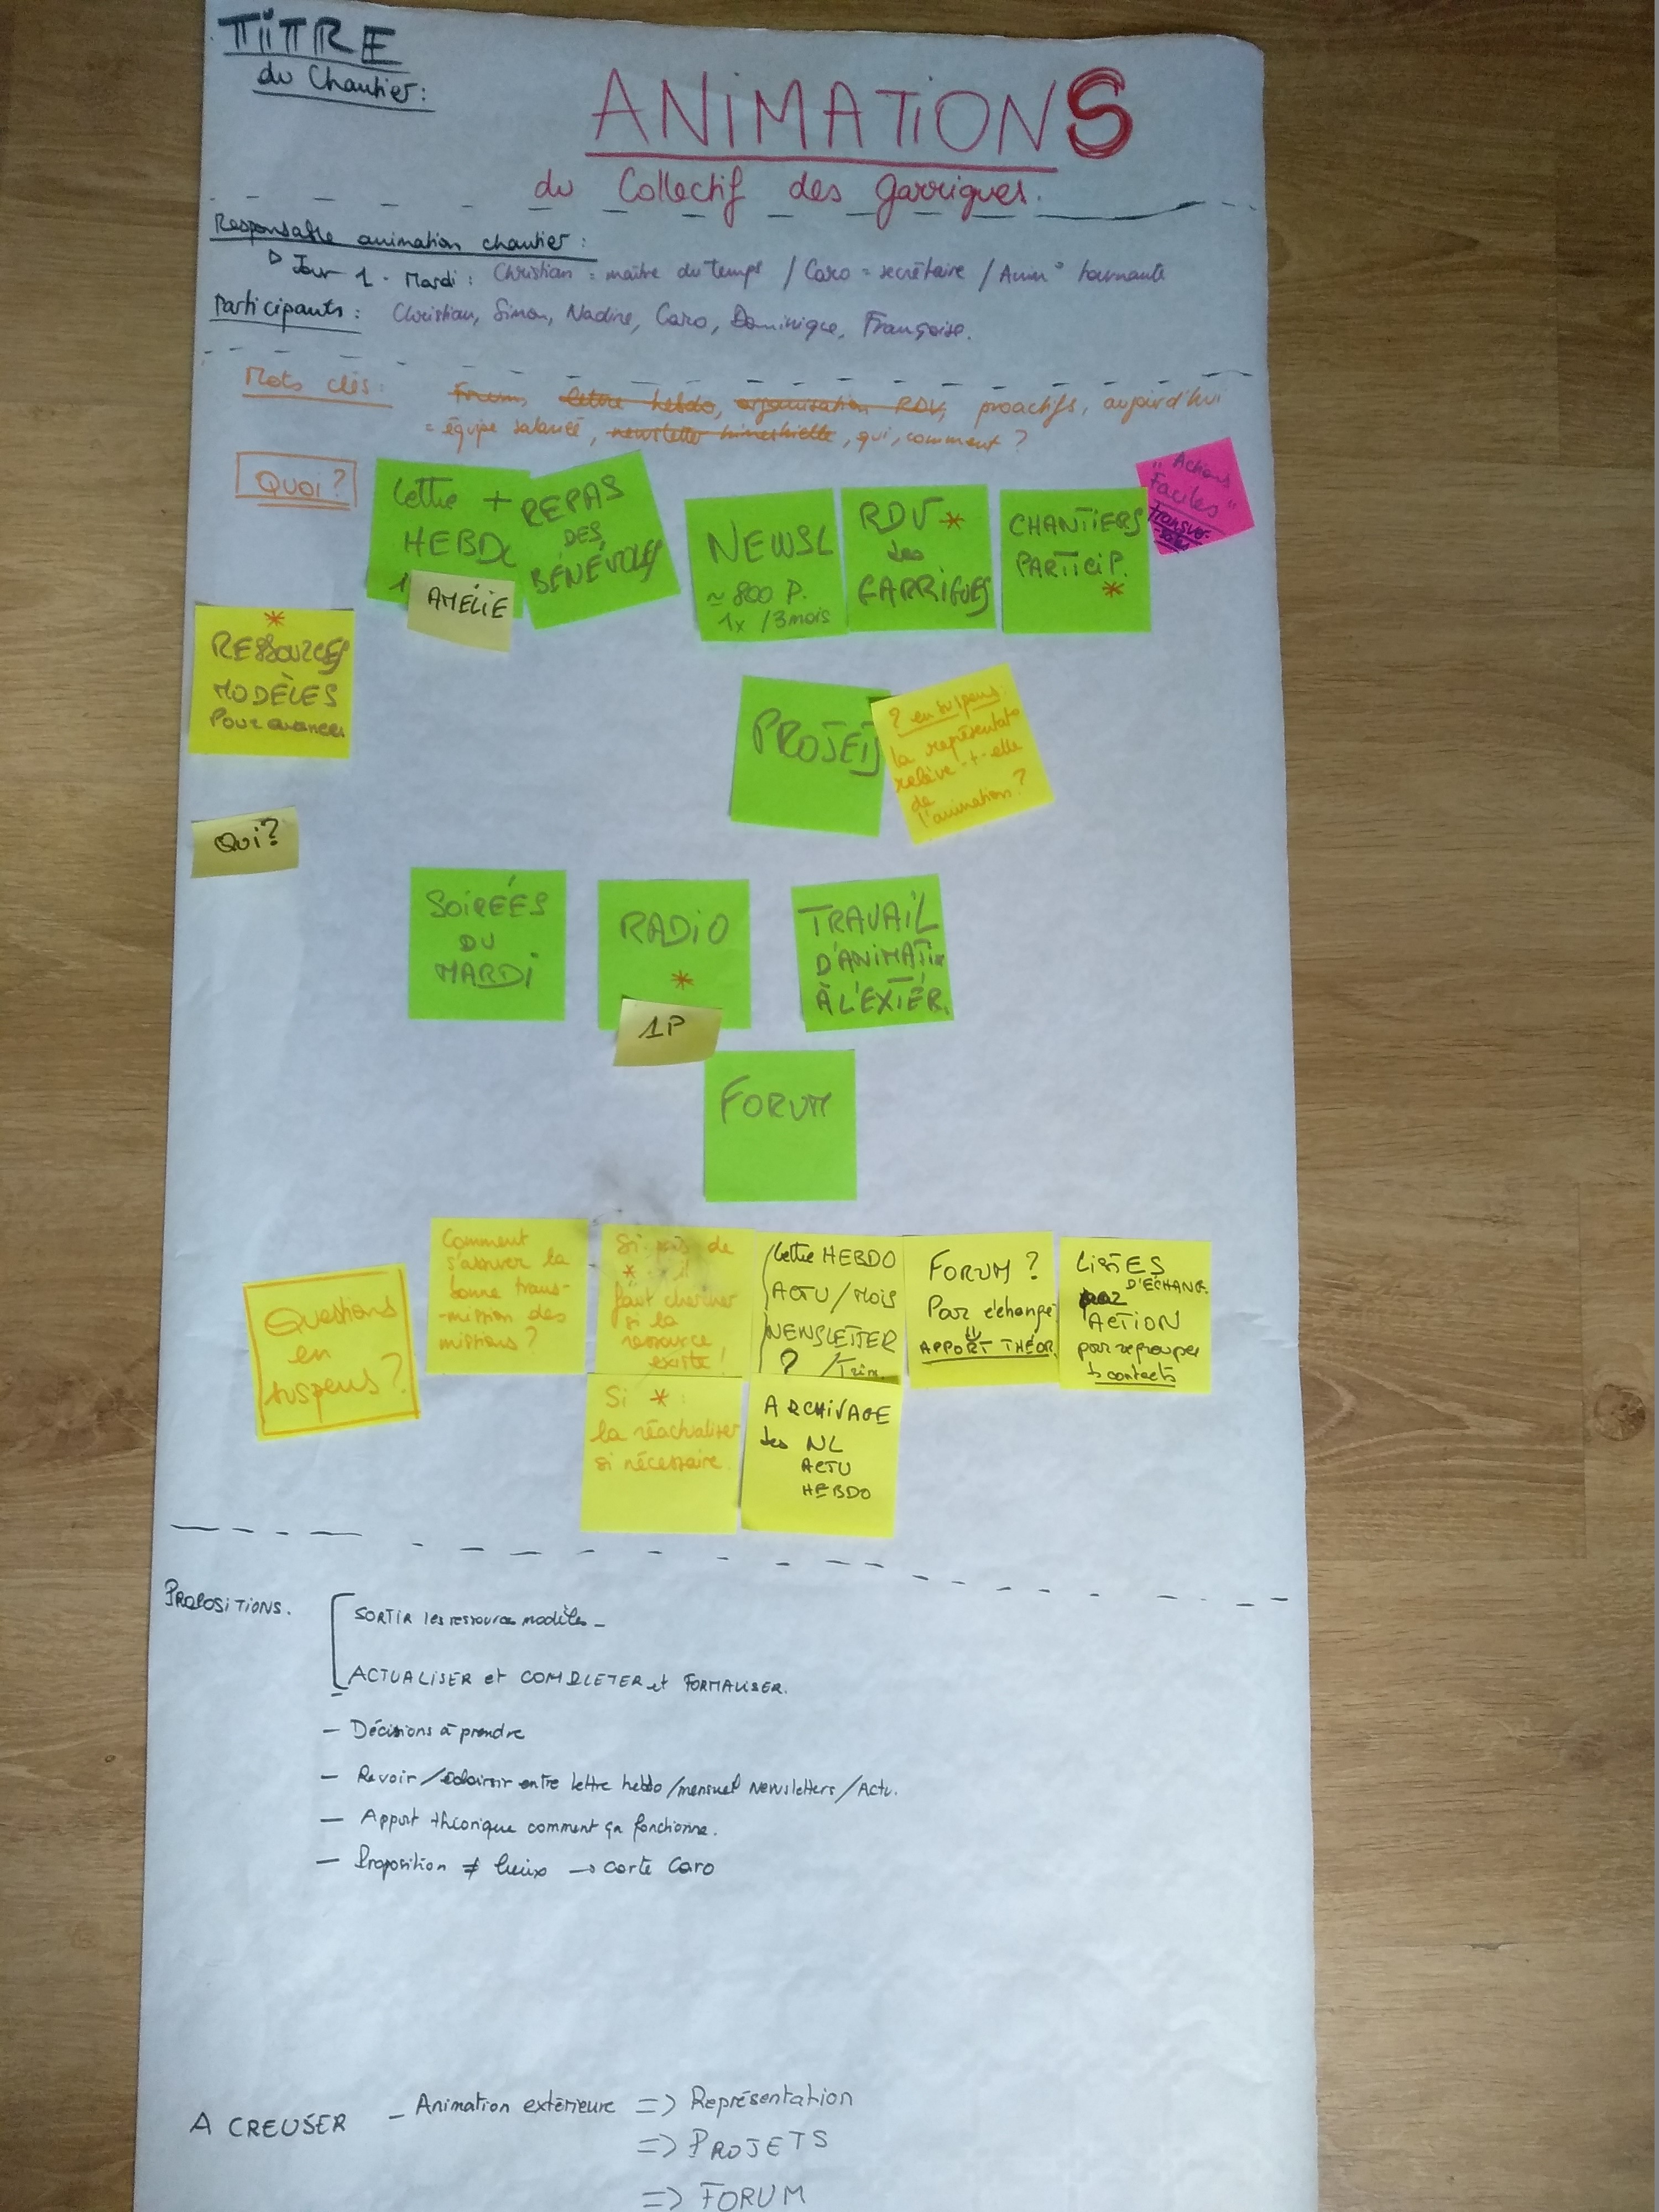 TITRE
du Chantier :
ANIMATIONS
du Collectif des Garrigues.
Responsable animation chantier :
Jour 1 - Mardi : Christian = maître du temps / Caro = secrétaire / Anim° tournante
Participants : Christian, Simon, Nadine, Caro, Dominique, Françoise.
Mots clés : Forum, lettre hebdo, organisation RDV, proactifs, aujourd'hui
= équipe salariée, newsletter trimestrielle, qui, comment ?
Quoi ?
Lettre +
HEBDO
1
AMÉLIE
REPAS
DES
BÉNÉVOLES
NEWSL
≈ 800 P.
1x /3mois
RDV *
des
GARRIGUES
CHANTIERS
PARTICIP.
*
"Actions
Faciles"
transver-
sales
*
RESSOURCES
MODÈLES
Pour avancer
PROJETS
? en suspens :
la représentat°
relève-t-elle
de
l'animation ?
Qui ?
SOIRÉES
DU
MARDI
RADIO
*
1P
TRAVAIL
D'ANIMATION
À L'EXTÉR.
FORUM
Questions
en
suspens ?
Comment
s'assurer la
bonne trans-
-mission des
missions ?
Si pas de
* : il
faut chercher
si la
ressource
existe !
Si * :
la réactualiser
si nécessaire.
Lettre HEBDO
ACTU / MOIS
NEWSLETTER
? /Trim.
ARCHIVAGE
des NL
ACTU
HEBDO
FORUM ?
Par échange
⇓
APPORT THÉOR.
LISTES
D'ÉCHANG.
par
ACTION
pour regrouper
ts contacts
PROPOSITIONS.
SORTIR les ressources modèles -
ACTUALISER et COMPLETER et FORMALISER.
- Décisions à prendre
- Revoir / éclaircir entre lettre hebdo / mensuel Newsletters / Actu.
- Apport théorique comment ça fonctionne.
- Proposition ≠ lieux → carte Caro
A CREUSER - Animation extérieure => Représentation
=> PROJETS
=> FORUM